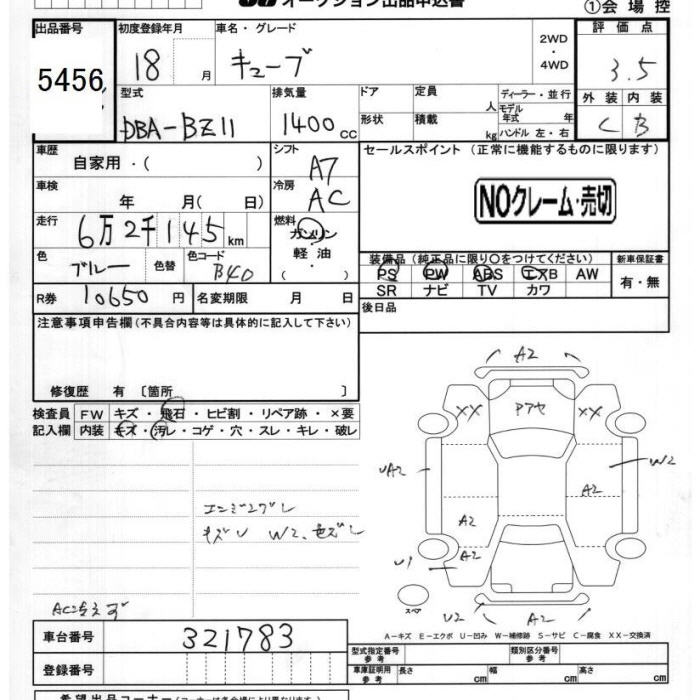 オークション出品申込書
①会場控
出品番号 5456
初度登録年月 18 月
車名・グレード キューブ
2WD・4WD
評価点 3.5
外装 C 内装 B
型式 DBA-BZ11
排気量 1400 cc
ドア 定員 人
形状 積載 kg
ディーラー・並行
モデル年式 年
ハンドル 左・右
車歴 自家用・( )
シフト A7
セールスポイント (正常に機能するものに限ります)
車検 年 月( 日)
冷房 AC
NOクレーム・売切
走行 6万2千145 km
燃料 ガソリン・軽油・( )
色 ブルー 色替 色コード B40
装備品 (純正品に限り○をつけてください) 新車保証書
PS PW ABS エアB AW 有・無
SR ナビ TV カワ
R券 10650 円 名変期限 月 日
後日品
注意事項申告欄 (不具合内容等は具体的に記入して下さい)
修復歴 有 〔箇所 〕
検査員記入欄 FW キズ・飛石・ヒビ割・リペア跡・×要
内装 キズ・汚レ・コゲ・穴・スレ・キレ・破レ
A2
XX
XX
UA2
W2
A2
A2
A2
U1
U2
A2
スペア
W2、色ズレ
A-キズ E-エクボ U-凹み W-補修跡 S-サビ C-腐食 XX-交換済
車台番号 321783
型式指定番号 参考 類別区分番号 参考
登録番号
車庫証明用 参考 長さ cm 幅 cm 高さ cm
希望出品コーナー